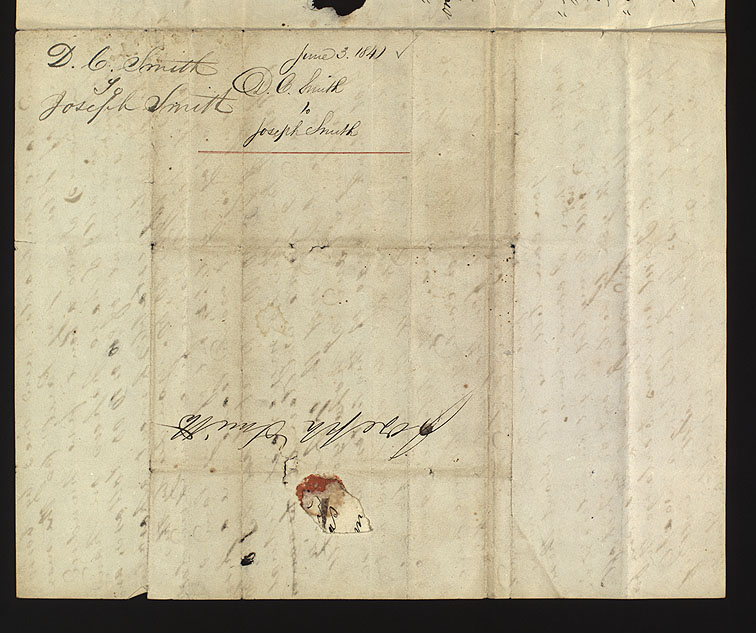 D. C. Smith
to
Joseph Smith
June 3. 1841 ✓
D. C. Smith
to
Joseph Smith
Joseph Smith